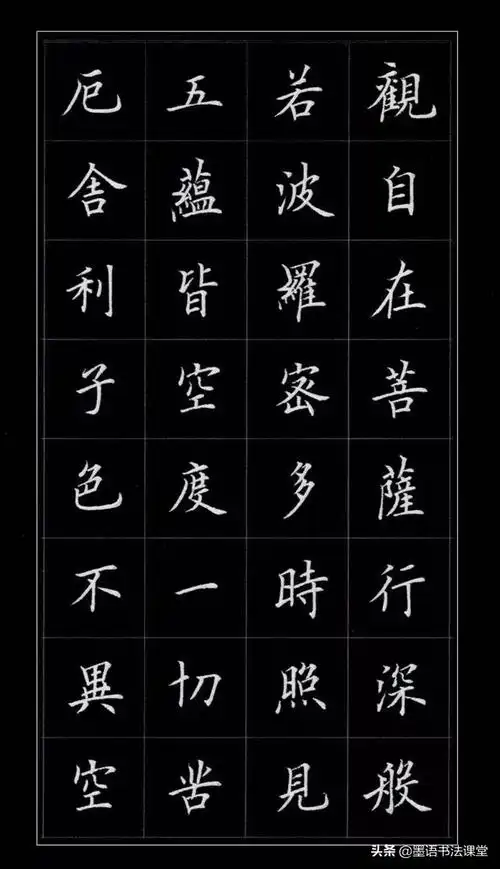 觀自在菩薩行深般
若波羅密多時照見
五蘊皆空度一切苦
厄舍利子色不異空
头条 @墨语书法课堂